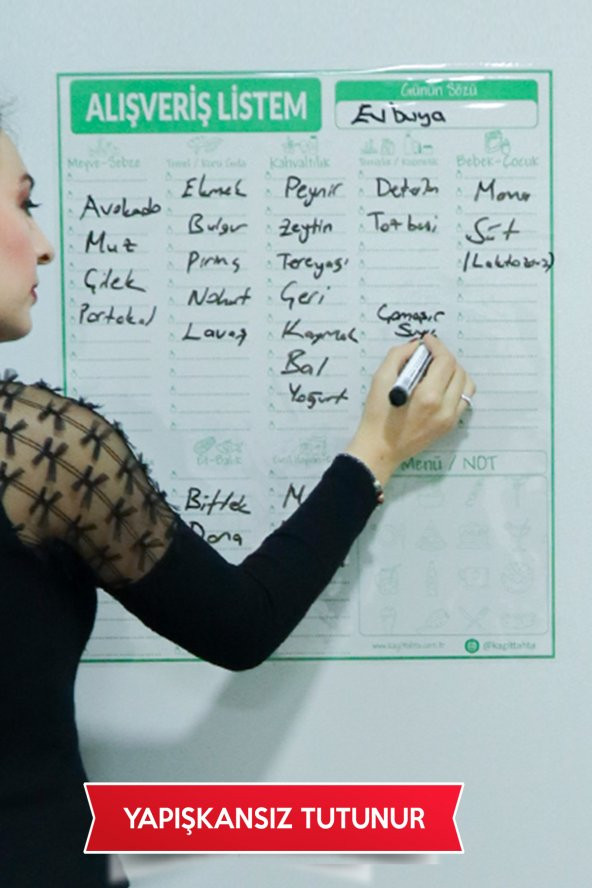 ALIŞVERİŞ LİSTEM
Günün Sözü
Evibuya
Meyve-Sebze
Avokado
Muz
Çilek
Portakal
Temel / Kuru Gıda
Ekmek
Bulgur
Pirinç
Nohut
Lavaş
Kahvaltılık
Peynir
Zeytin
Tereyağı
Geri
Kaymak
Bal
Yoğurt
Temizlik / Kozmetik
Çamaşır
Bebek-Çocuk
Mama
Süt
Et-Balık
Biftek
Dana
Menü / NOT
www.kagittahta.com.tr
@kagittahta
YAPIŞKANSIZ TUTUNUR